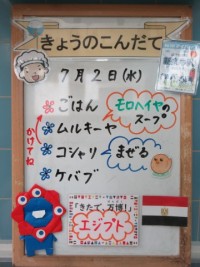 きょうのこんだて
7月2日(水)
ごはん
モロヘイヤの
スープ
かけてね
ムルキーヤ
コシャリ
まぜる
ケバブ
「きたで、万博!」
エジプト